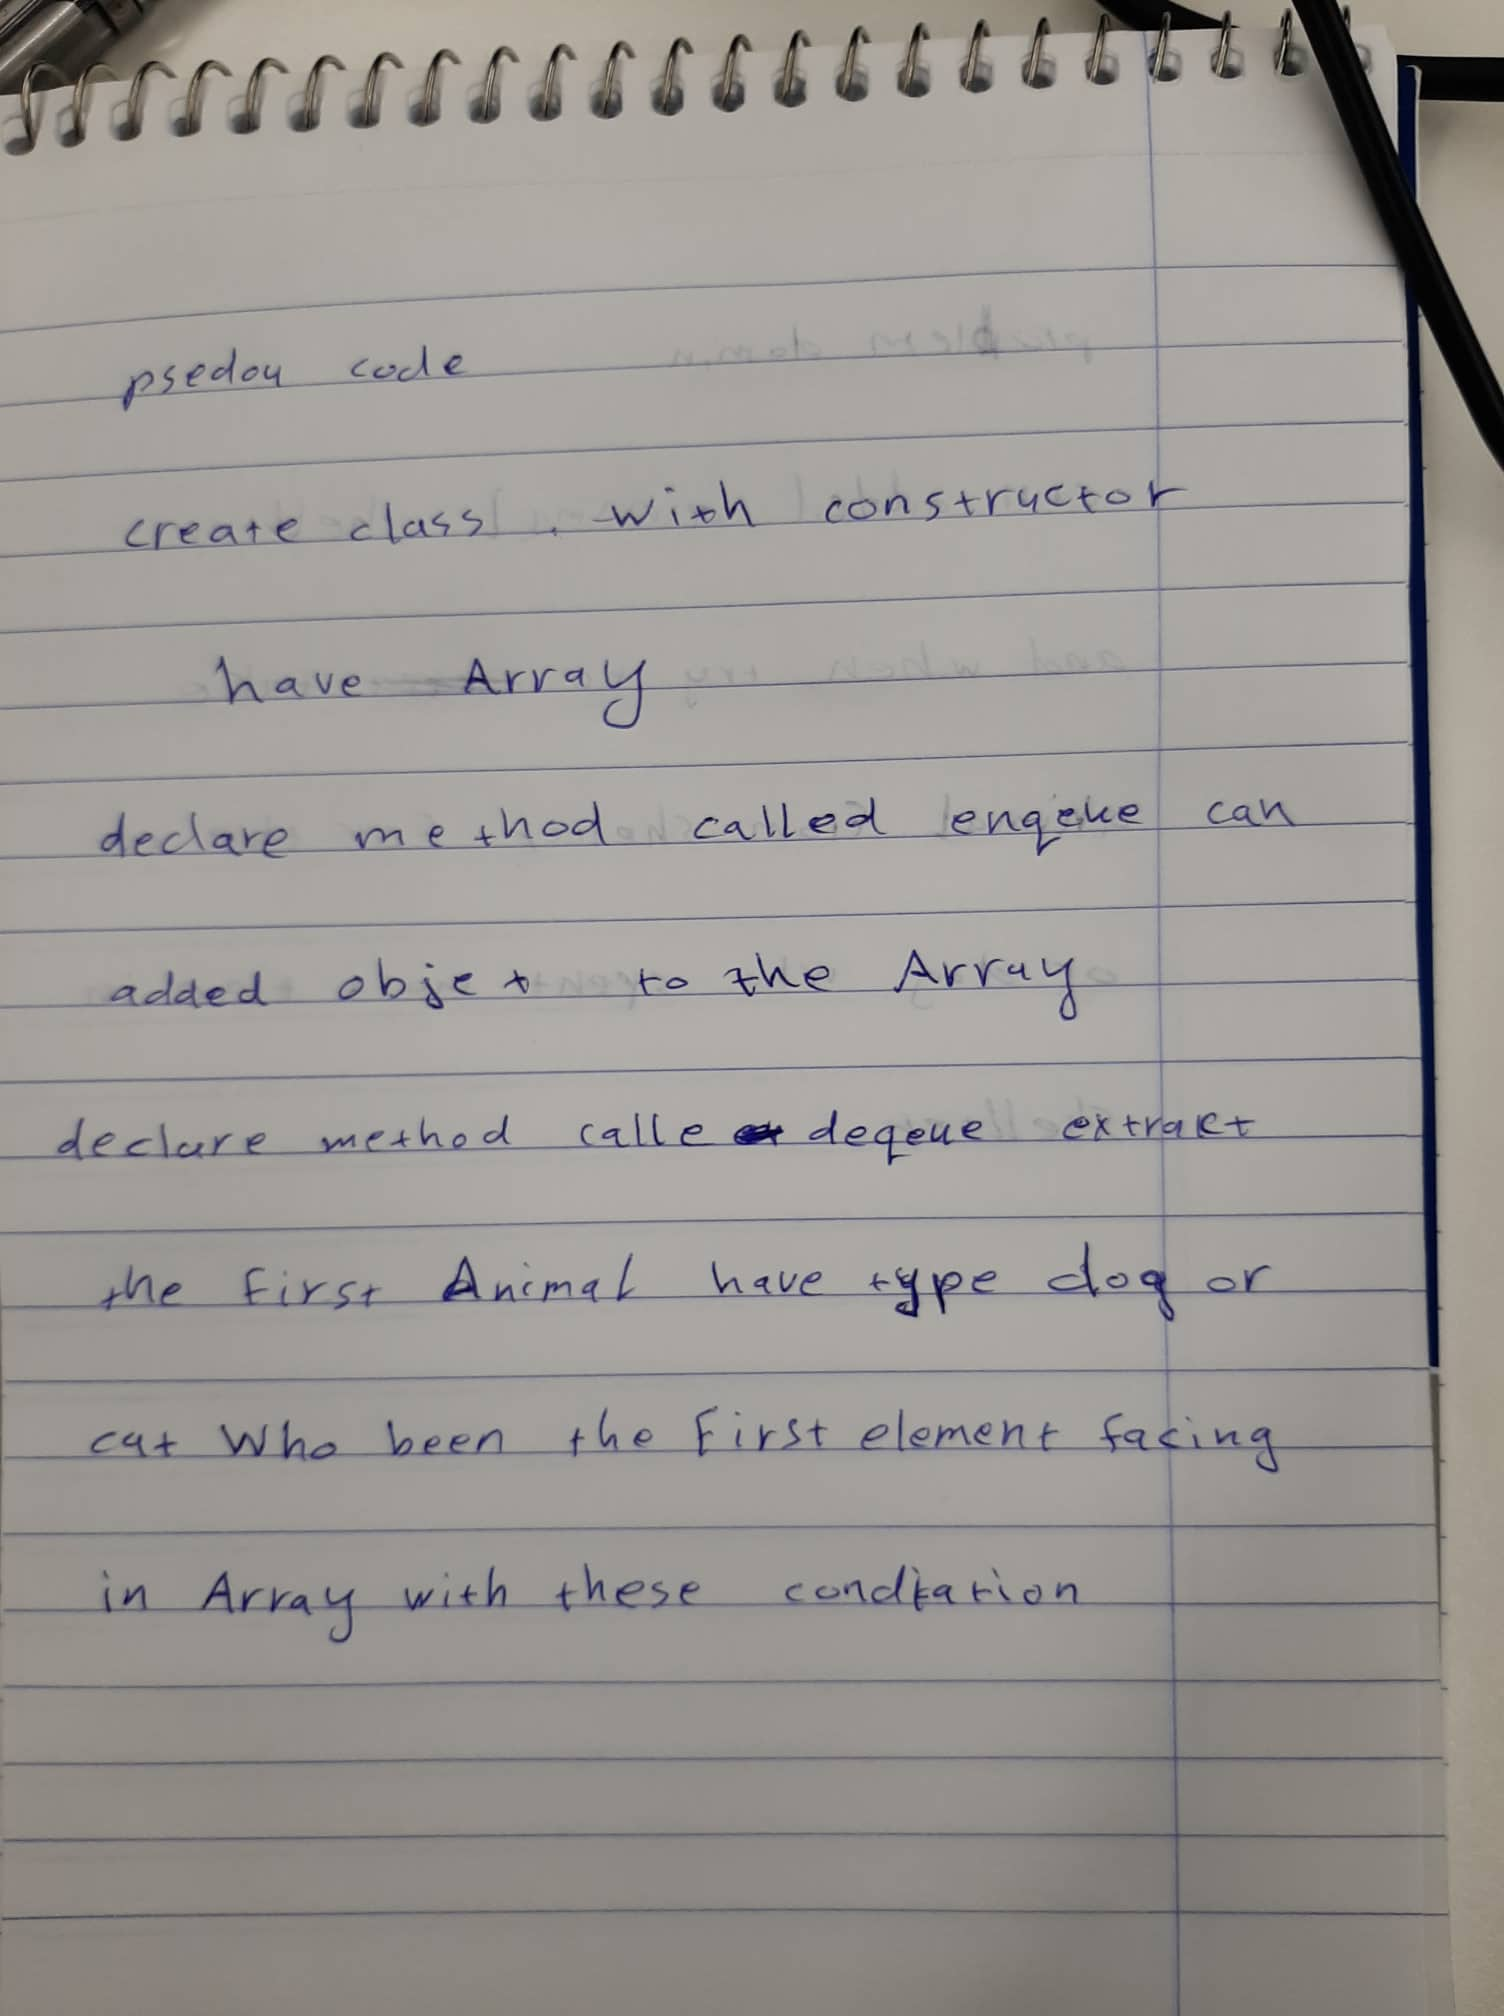 psedou code
create class with constructor
have Array
declare method called enqeue can
added objet to the Array
declare method calle deqeue extract
the First Animal have type dog or
cat Who been the First element facing
in Array with these condtation